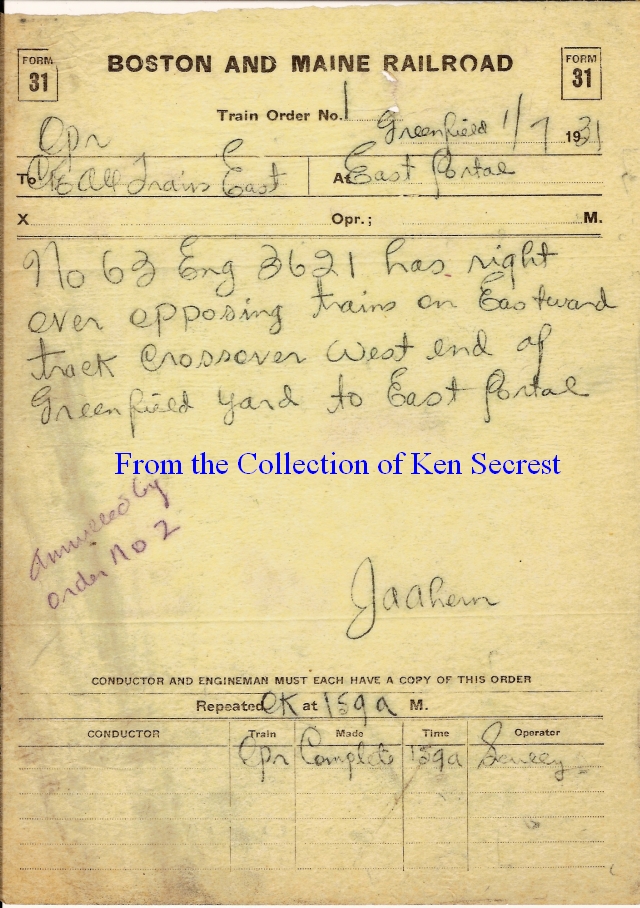 FORM 31
BOSTON AND MAINE RAILROAD
FORM 31
Train Order No. 1 Greenfield 1/7 1931
Opr
To C&E All Trains East At East Portal
X Opr.; M.
No 63 Eng 3621 has right
over opposing trains on Eastward
track Crossover West end of
Greenfield Yard to East Portal
From the Collection of Ken Secrest
Annulled by
order No 2
JAAhern
CONDUCTOR AND ENGINEMAN MUST EACH HAVE A COPY OF THIS ORDER
Repeated OK at 159a M.
CONDUCTOR Train Made Time Operator
Opr Complete 159a